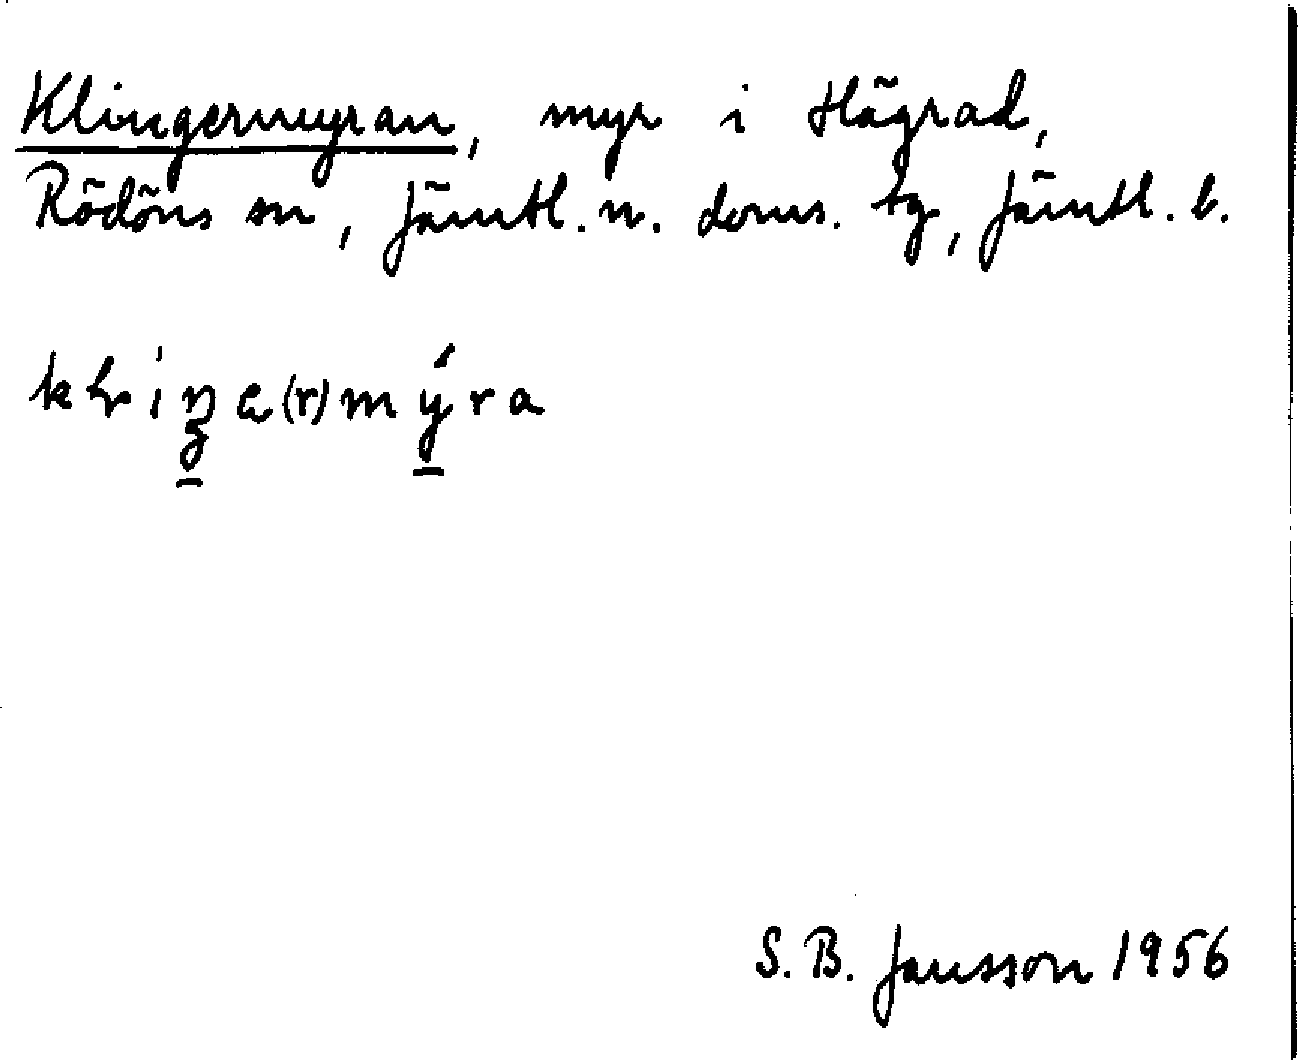 Klingermyran, myr i Hägrad,
Rödöns sn, Jämtl. n. doms. tg, Jämtl. l.
S. B. Jansson 1956